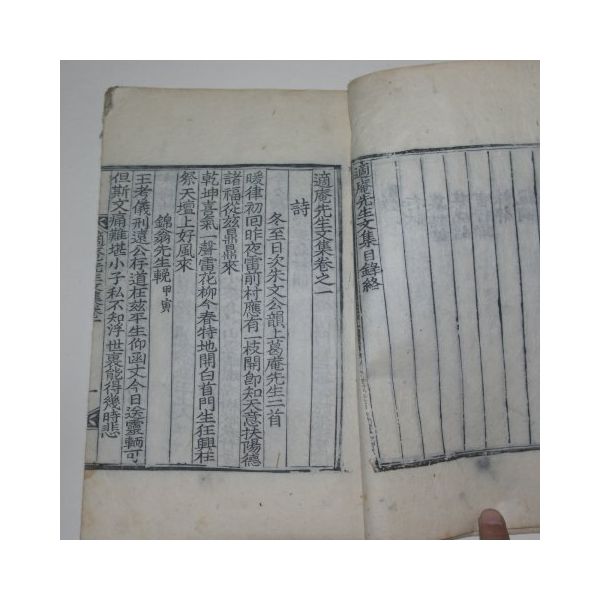 適庵先生文集目錄終
適庵先生文集卷之一
詩
冬至日次朱文公韻上葛庵先生三首
暖律初回昨夜雷前村應有一枝開卽知天意扶陽德
諸福從玆鼎鼎來
乾坤喜氣一聲雷花柳今春特地開白首門生狂興在
祭天壇上好風來
錦翁先生輓 甲寅
王考儀刑遠公存道在玆平生仰函丈今日送靈輀可
但斯文痛難堪小子私不知浮世裏能得幾時悲
適庵先生文集卷一
一